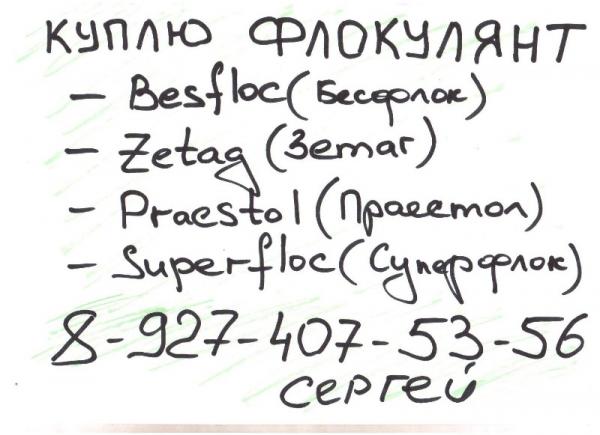 КУПЛЮ ФЛОКУЛЯНТ
- Besfloc (Бесфлок)
- Zetag (Зетаг)
- Praestol (Праестол)
- Superfloc (Суперфлок)
8-927-407-53-56
СЕРГЕЙ